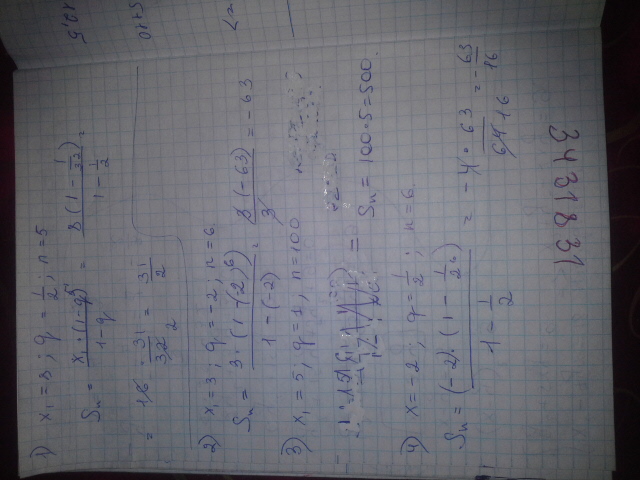 1) x₁ = 8 ; q = 1/2 ; n = 5
Sₙ = x₁·(1-q⁵)/1-q = 8(1 - 1/32)/1 - 1/2 =
= 16 · 31/32 = 31/2
2) x₁ = 3 ; q = -2 ; n = 6
Sₙ = 3·(1-(2)⁶)/1-(-2) = 3(-63)/3 = -63
3) x₁ = 5 ; q = 1 ; n = 100
Sₙ = 100·5 = 500.
4) x = -2 ; q = 1/2 ; n = 6
Sₙ = (-2)·(1 - 1/2⁶)/1 - 1/2 = -4 · 63/64 16 = - 63/16
3431831
12,5
5+10